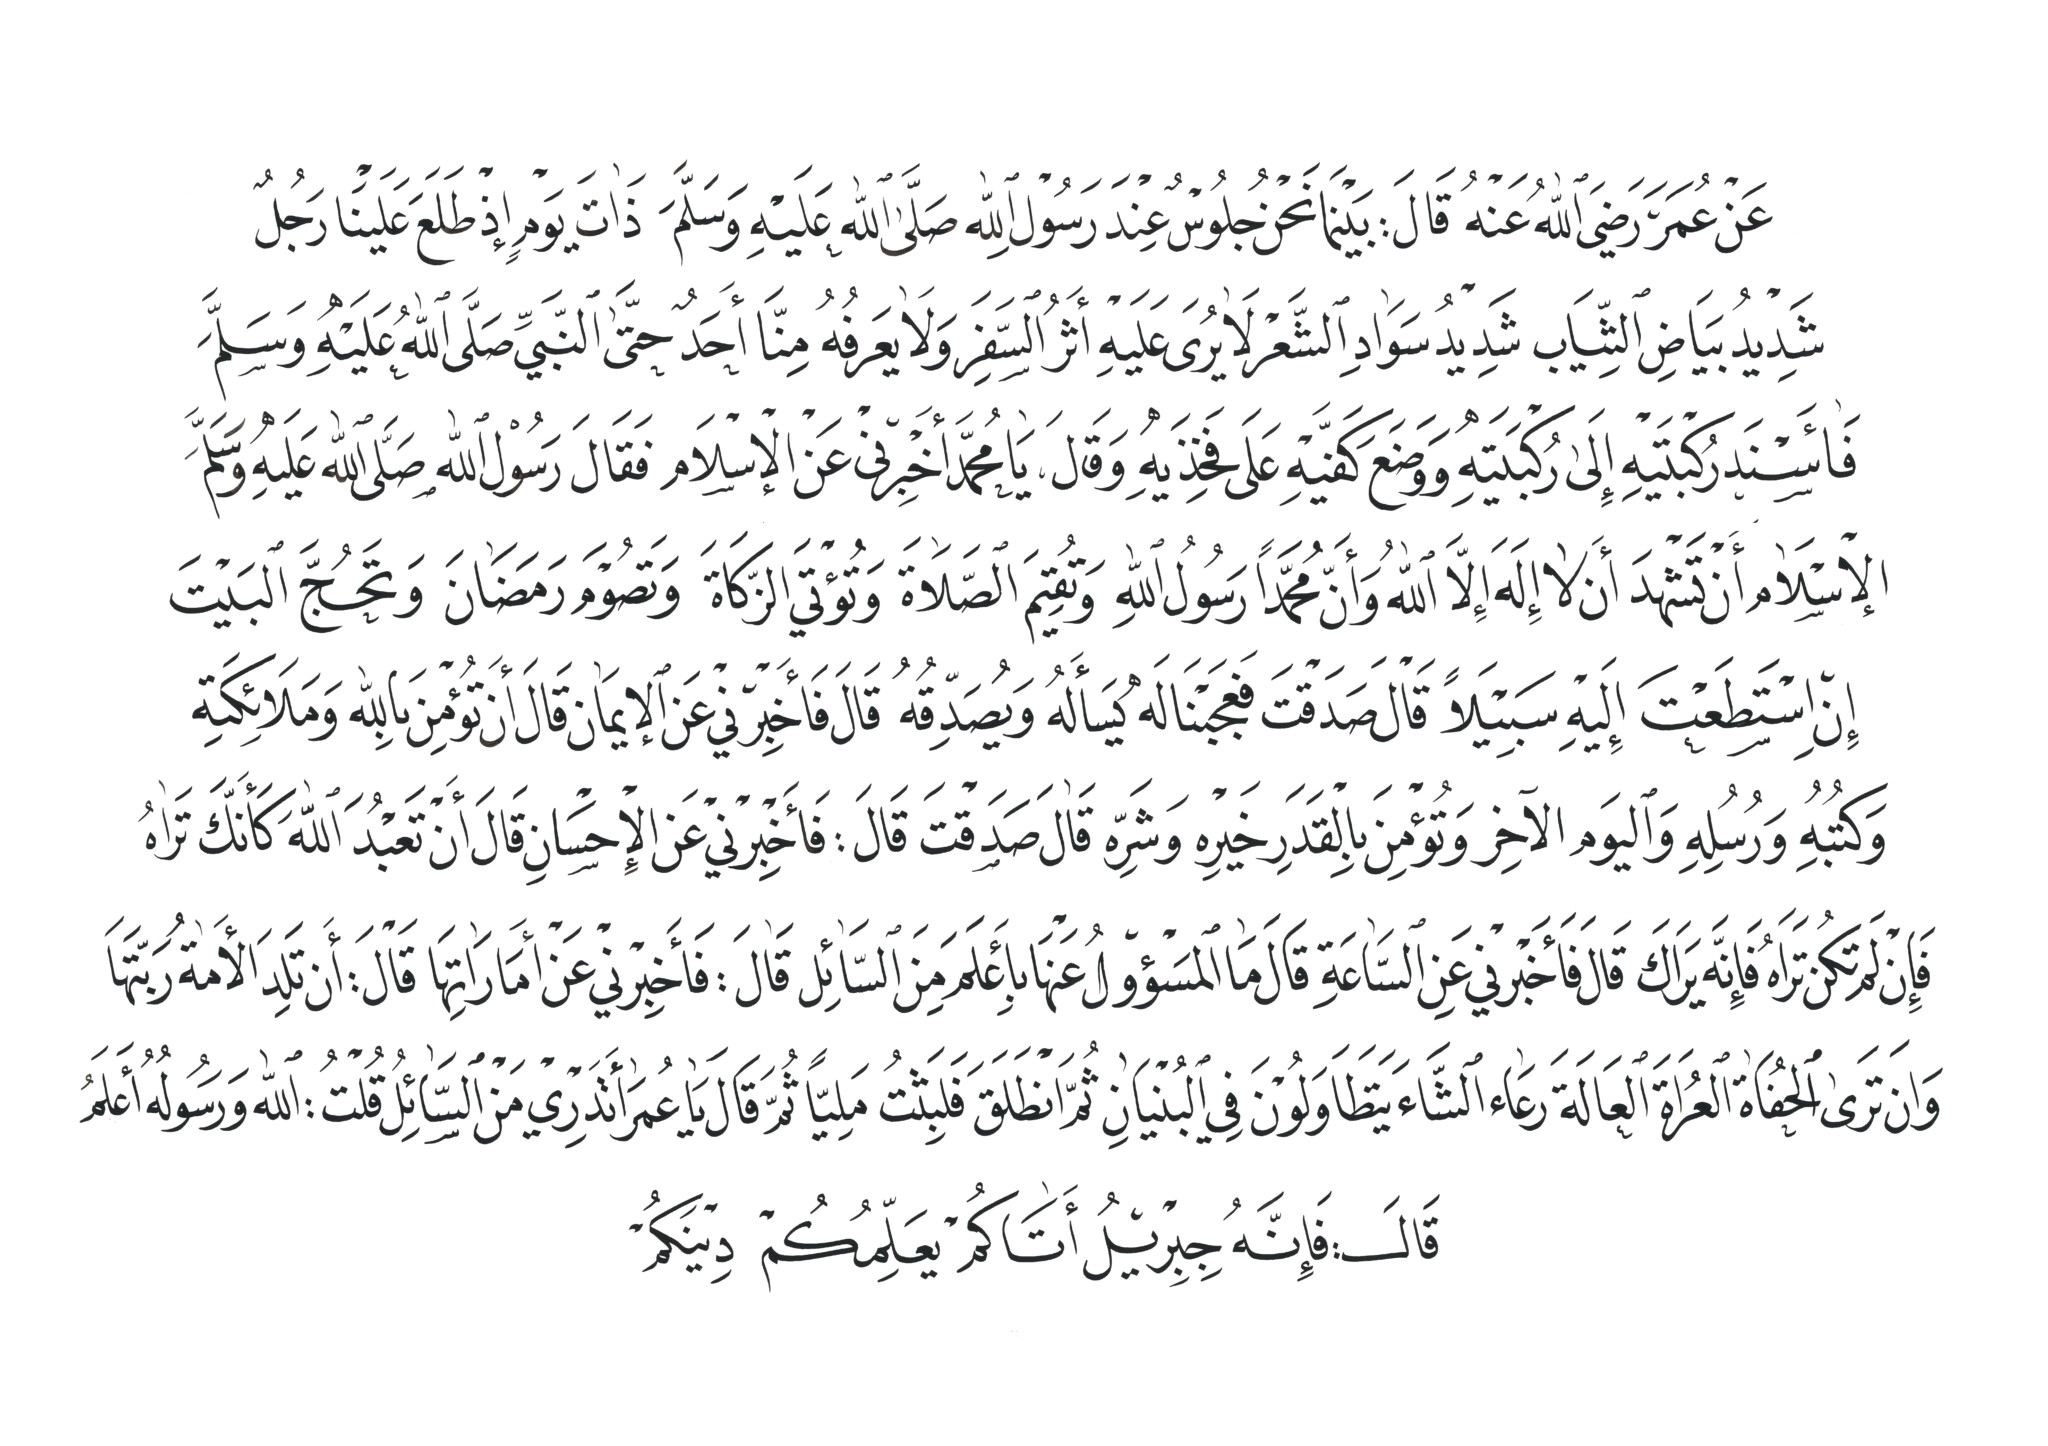 عَنْ عُمَرَ رَضِيَ ٱللّٰهُ عَنْهُ قَالَ: بَيْنَمَا نَحْنُ جُلُوْسٌ عِنْدَ رَسُوْلِ ٱللّٰهِ صَلَّى ٱللّٰه عَلَيْهِ وَسَلَّمَ ذَاتَ يَوْمٍ إِذْ طَلَعَ عَلَيْنَا رَجُلٌ
شَدِيْدُ بَيَاضِ ٱلثِّيَابِ شَدِيْدُ سَوَادِ ٱلشَّعْرِ لَا يُرَى عَلَيْهِ أَثَرُ ٱلسَّفَرِ وَلَا يَعْرِفُهُ مِنَّا أَحَدٌ حَتَّى ٱلنَّبِيِّ صَلَّى ٱللّٰهُ عَلَيْهِ وَسَلَّمَ
فَأَسْنَدَ رُكْبَتَيْهِ إِلَى رُكْبَتَيْهِ وَوَضَعَ كَفَّيْهِ عَلَى فَخِذَيْهِ وَقَالَ يَا مُحَمَّد أَخْبِرْنِي عَنْ الْإِسْلَام فَقَالَ رَسُوْلُ ٱللّٰه صَلَّى ٱللّٰه عَلَيْهِ وَسَلَّمَ
الْإِسْلَام أَنْ تَشْهَدَ أَن لَا إِلَهَ إِلَّا ٱللّٰهُ وَأَنَّ مُحَمَّدًا رَسُولُ ٱللّٰهِ وَتُقِيْمَ ٱلصَّلَاةَ وَتُؤْتِيَ الزَّكَاةَ وَتَصُوْمَ رَمَضَانَ وَتَحُجَّ الْبَيْتَ
إِنْ اِسْتَطَعْتَ إِلَيْهِ سَبِيْلًا قَالَ صَدَقْتَ فَعَجِبْنَا لَهُ يَسْأَلُهُ وَيُصَدِّقُهُ قَالَ فَأَخْبِرْنِيْ عَنْ ٱلْإِيمَان قَالَ أَنْ تُؤْمِنَ بِاللّٰهِ وَمَلَائِكَتِهِ
وَكُتُبِهِ وَرُسُلِهِ وَٱلْيَوْم الْآخِر وَتُؤْمِنَ بِالْقَدَرِ خَيْرِهِ وَشَرِّهِ قَالَ صَدَقْتَ قَالَ: فَأَخْبِرْنِيْ عَن الْإِحْسَانِ قَالَ أَنْ تَعْبُدَ ٱللّٰهَ كَأَنَّكَ تَرَاهُ
فَإِنْ لَمْ تَكُنْ تَرَاهُ فَإِنَّه يَرَاكَ قَالَ فَأَخْبِرْنِي عَنِ ٱلسَّاعَةِ قَالَ مَا ٱلْمَسْؤوولُ عَنْهَا بِأَعْلَمَ مِنَ ٱلسَّائِل قَالَ: فَأَخْبِرْنِيْ عَنْ أَمَارَاتِهَا قَالَ: أَن تَلِدَ الْأَمَةُ رَبَّتَهَا
وَأَن تَرَى ٱلْحُفَاةَ ٱلْعُرَاةَ ٱلْعَالَةَ رَعَاءَ ٱلشَّاءَ يَتَطَاوَلُوْنَ فِي ٱلْبُنْيَانِ ثُمَّ ٱنْطَلَقَ فَلَبِثْتُ مَلِيًّا ثُمَّ قَالَ يَا عُمَر أَتَدْرِيْ مَنْ ٱلسَّائِلُ قُلْتُ: ٱللّٰه وَرَسُولُهُ أَعْلَمُ
قَالَ: فَإِنَّهُ جِبْرِيْلُ أَتَاكُمْ يعَلِّمُكُمْ دِيْنَكُمْ